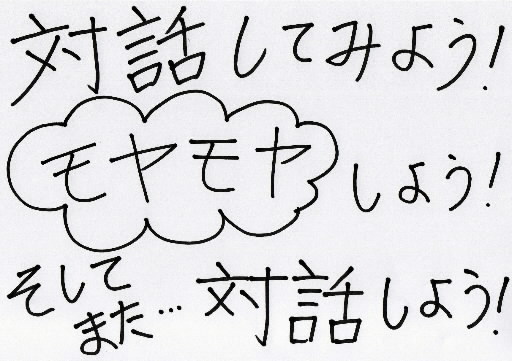 対話してみよう!
モヤモヤしよう!
そしてまた…対話しよう!